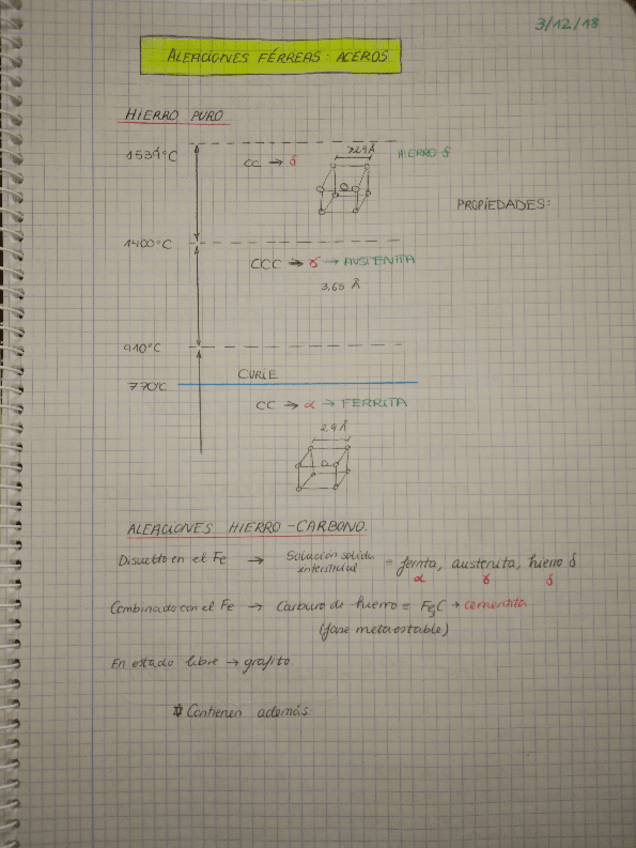 3/12/18
ALEACIONES FÉRREAS: ACEROS
HIERRO PURO
1539°C
CC → δ
2,9 Å
HIERRO δ
PROPIEDADES:
1400°C
CCC → γ → AUSTENITA
3,65 Å
910°C
CURIE
770°C
CC → α → FERRITA
2,9 Å
ALEACIONES HIERRO-CARBONO
Disuelto en el Fe → Solución sólida intersticial = ferrita, austenita, hierro δ
α γ δ
Combinado con el Fe → Carburo de hierro = Fe3C → cementita
(fase metaestable)
En estado libre → grafito.
* Contienen además: